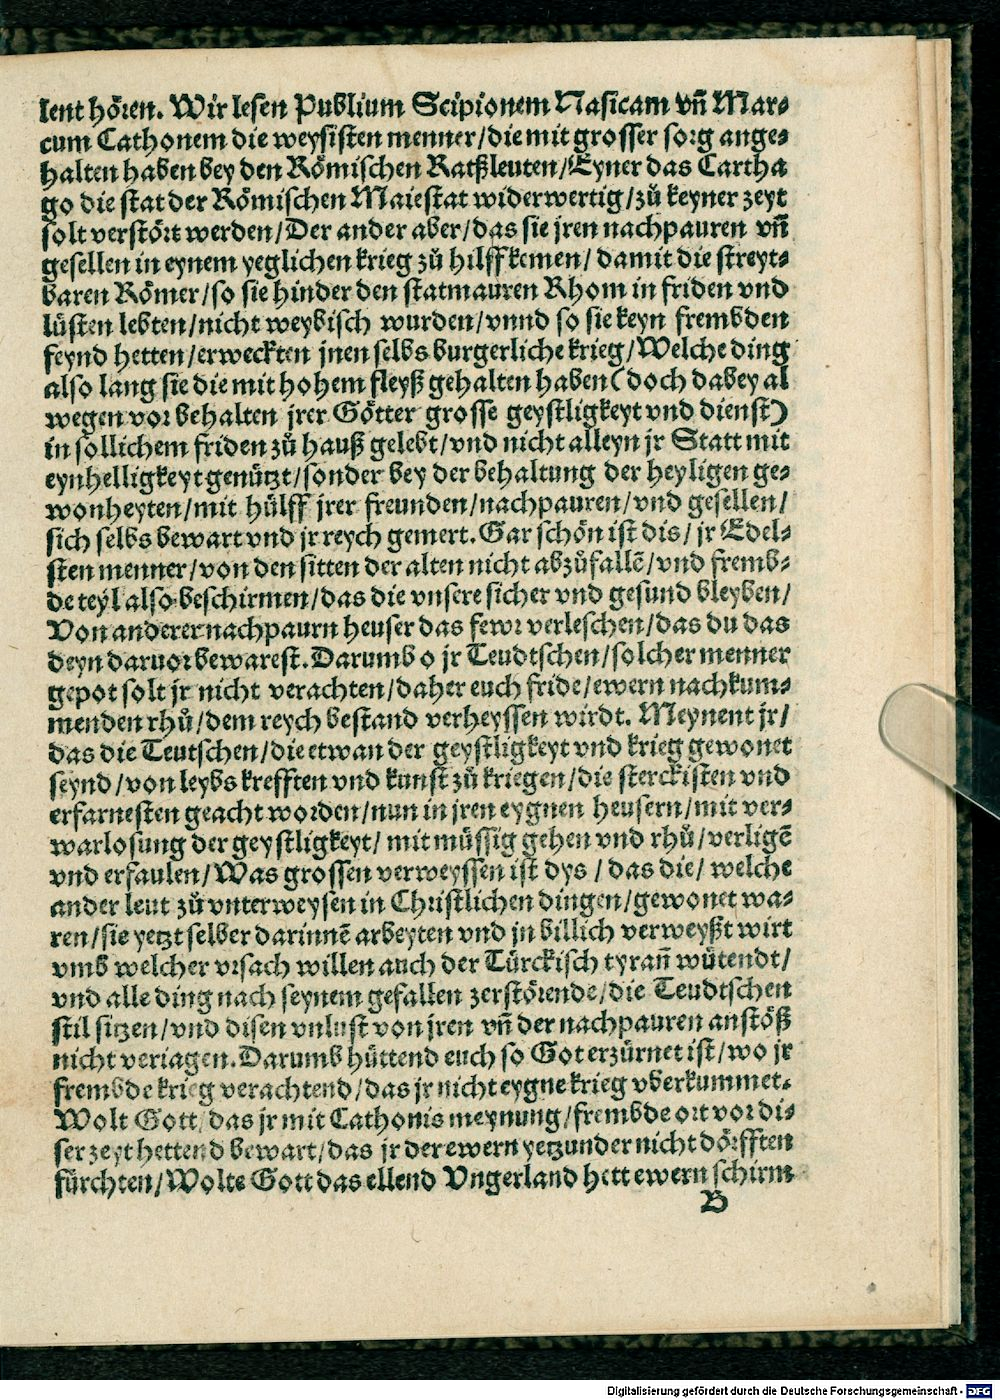 lent hören. Wir lesen Publium Scipionem Nasicam vñ Mar-
cum Cathonem die weysisten menner/die mit grosser sorg ange-
halten haben bey den Römischen Ratßleuten/Eyner das Cartha
go die stat der Römischen Maiestat widerwertig/zů keyner zeyt
solt verstört werden/Der ander aber/das sie jren nachpauren vñ
gesellen in eynem yeglichen krieg zů hilff kemen/damit die streyt-
baren Römer/so sie hinder den statmauren Rhom in friden vnd
lüsten lebten/nicht weybisch wurden/vnnd so sie keyn frembden
feynd hetten/erweckten jnen selbs burgerliche krieg/Welche ding
also lang sie die mit hohem fleyß gehalten haben (doch dabey al
wegen vor behalten jrer Götter grosse geystligkeyt vnd dienst)
in sollichem friden zů hauß gelebt/vnd nicht alleyn jr Statt mit
eynhelligkeyt genützt/sonder bey der behaltung der heyligen ge-
wonheyten/mit hülff jrer freunden/nachpauren/vnd gesellen/
sich selbs bewart vnd jr reych gemert. Gar schön ist dis/jr Edel-
sten menner/von den sitten der alten nicht abzůfallē/vnd fremb-
de teyl also beschirmen/das die vnsere sicher vnd gesund bleyben/
Von anderer nachpaurn heuser das fewr verleschen/das du das
deyn daruor bewarest. Darumb o jr Teudtschen/solcher menner
gepot solt jr nicht verachten/daher euch fride/ewern nachkum-
menden rhů/dem reych bestand verheyssen wirdt. Meynent jr/
das die Teutschen/die etwan der geystligkeyt vnd krieg gewonet
seynd/von leybs krefften vnd kunst zů kriegen/die sterckisten vnd
erfarnesten geacht worden/nun in jren eygnen heusern/mit ver-
warlosung der geystligkeyt/mit müssig gehen vnd rhů/verligē
vnd erfaulen/Was grossen verweyssen ist dys/das die/welche
ander leut zů vnterweysen in Christlichen dingen/gewonet wa-
ren/sie yetzt selber darinnē arbeyten vnd jn billich verweyßt wirt
vmb welcher vrsach willen auch der Türckisch tyrañ wütendt/
vnd alle ding nach seynem gefallen zerstörende/die Teudtschen
stil sitzen/vnd disen vnlust von jren vñ der nachpauren anstöß
nicht veriagen. Darumb hüttend euch so Got erzürnet ist/wo jr
frembde krieg verachtend/das jr nicht eygne krieg vberkummet.
Wolt Gott/das jr mit Cathonis meynung/frembde ort vor di-
ser zeyt hettend bewart/das jr der ewern yetzunder nicht dörfften
fürchten/Wolte Gott das ellend Vngerland hett ewern schirm
B
Digitalisierung gefördert durch die Deutsche Forschungsgemeinschaft - DFG